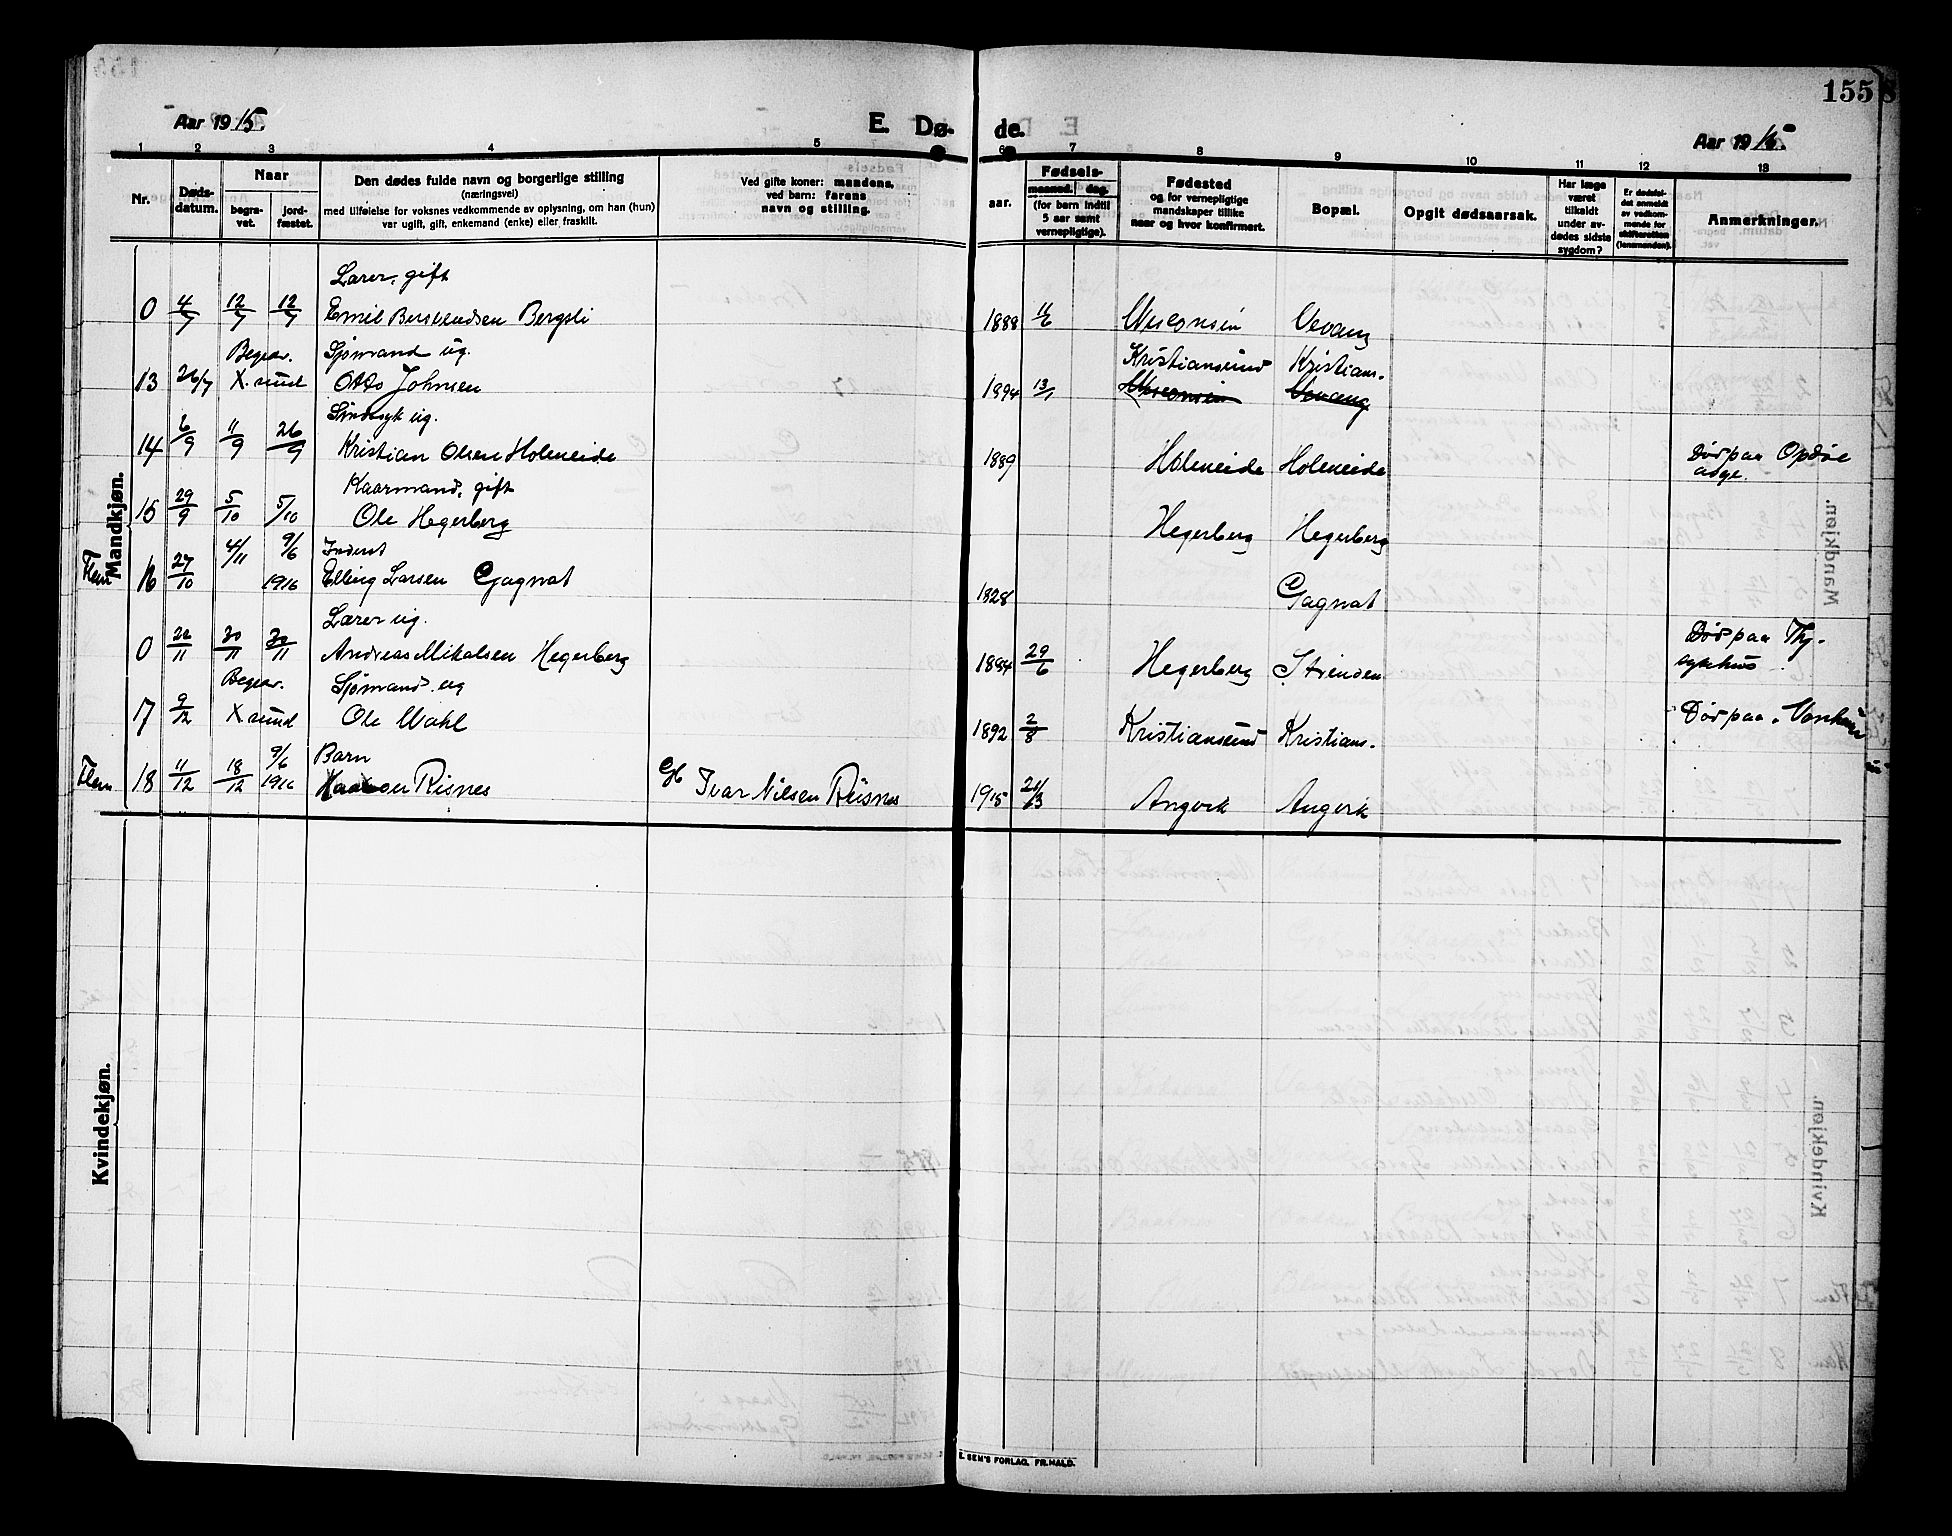 155
Aar 1915.
E. Dø-
de.
Aar 1915.
1 2 3 4 5 6 7 8 9 10 11 12 13
Nr.
Døds-
datum.
Naar
begra-
vet.
jord-
fæstet.
Den dødes fulde navn og borgerlige stilling
(næringsvei)
med tilføielse for voksnes vedkommende av oplysning, om han (hun)
var ugift, gift, enkemand (enke) eller fraskilt.
Ved gifte koner: mandens,
ved barn: farens
navn og stilling.
aar.
Fødsels-
maaned. dag.
(for barn indtil
5 aar samt
vernepligtige).
Fødested
og for vernepligtige
mandskaper tillike
naar og hvor konfirmert.
Bopæl.
Opgit dødsaarsak.
Har læge
været
tilkaldt
under av-
dødes sidste
sygdom?
Er dødsfal-
det anmeldt
av vedkom-
mende for
skifteretten
(lensmanden).
Anmerkninger.
Mandkjøn.
Lærer, gift
0 4/7 12/7 12/7 Emil Bersvendsen Bergsli 1888 11/6 Wisconsin Vevang
Begrav. Sjømand ug. Kristiansund Kristians.
13 26/7 X.sund Otto Johnsen 1894 13/1 Wisconsin Vevang
Sindssyk ug.
14 6/9 11/9 26/9 Kristian Olsen Holeneide 1889 Holeneide Holeneide Død paa Opdøl
asyl.
Kaarmand, gift
15 29/9 5/10 5/10 Ole Hegerberg Hegerberg Hegerberg
4/11 9/6 Inderst
16 27/10 1916 Elling Larsen Gagnat 1828 Gagnat
Lærer ug.
0 22/11 30/11 30/11 Andreas Mikalsen Hegerberg 1884 29/6 Hegerberg Strinden Død paa
sykehus
Begrav. Sjømand ug
17 9/12 X sund Ole Wahl 1892 2/8 Kristiansund Kristians. Død paa
9/6 Barn
18 11/12 18/12 1916 Haakon Risnes Ivar Nilsen Risnes 1915 21/3 Angvik Angvik
Kvindekjøn.
SEN'S FORLAG, FR.HALD.